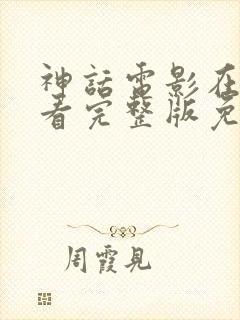 神話電影在
看完整版免
周霞見